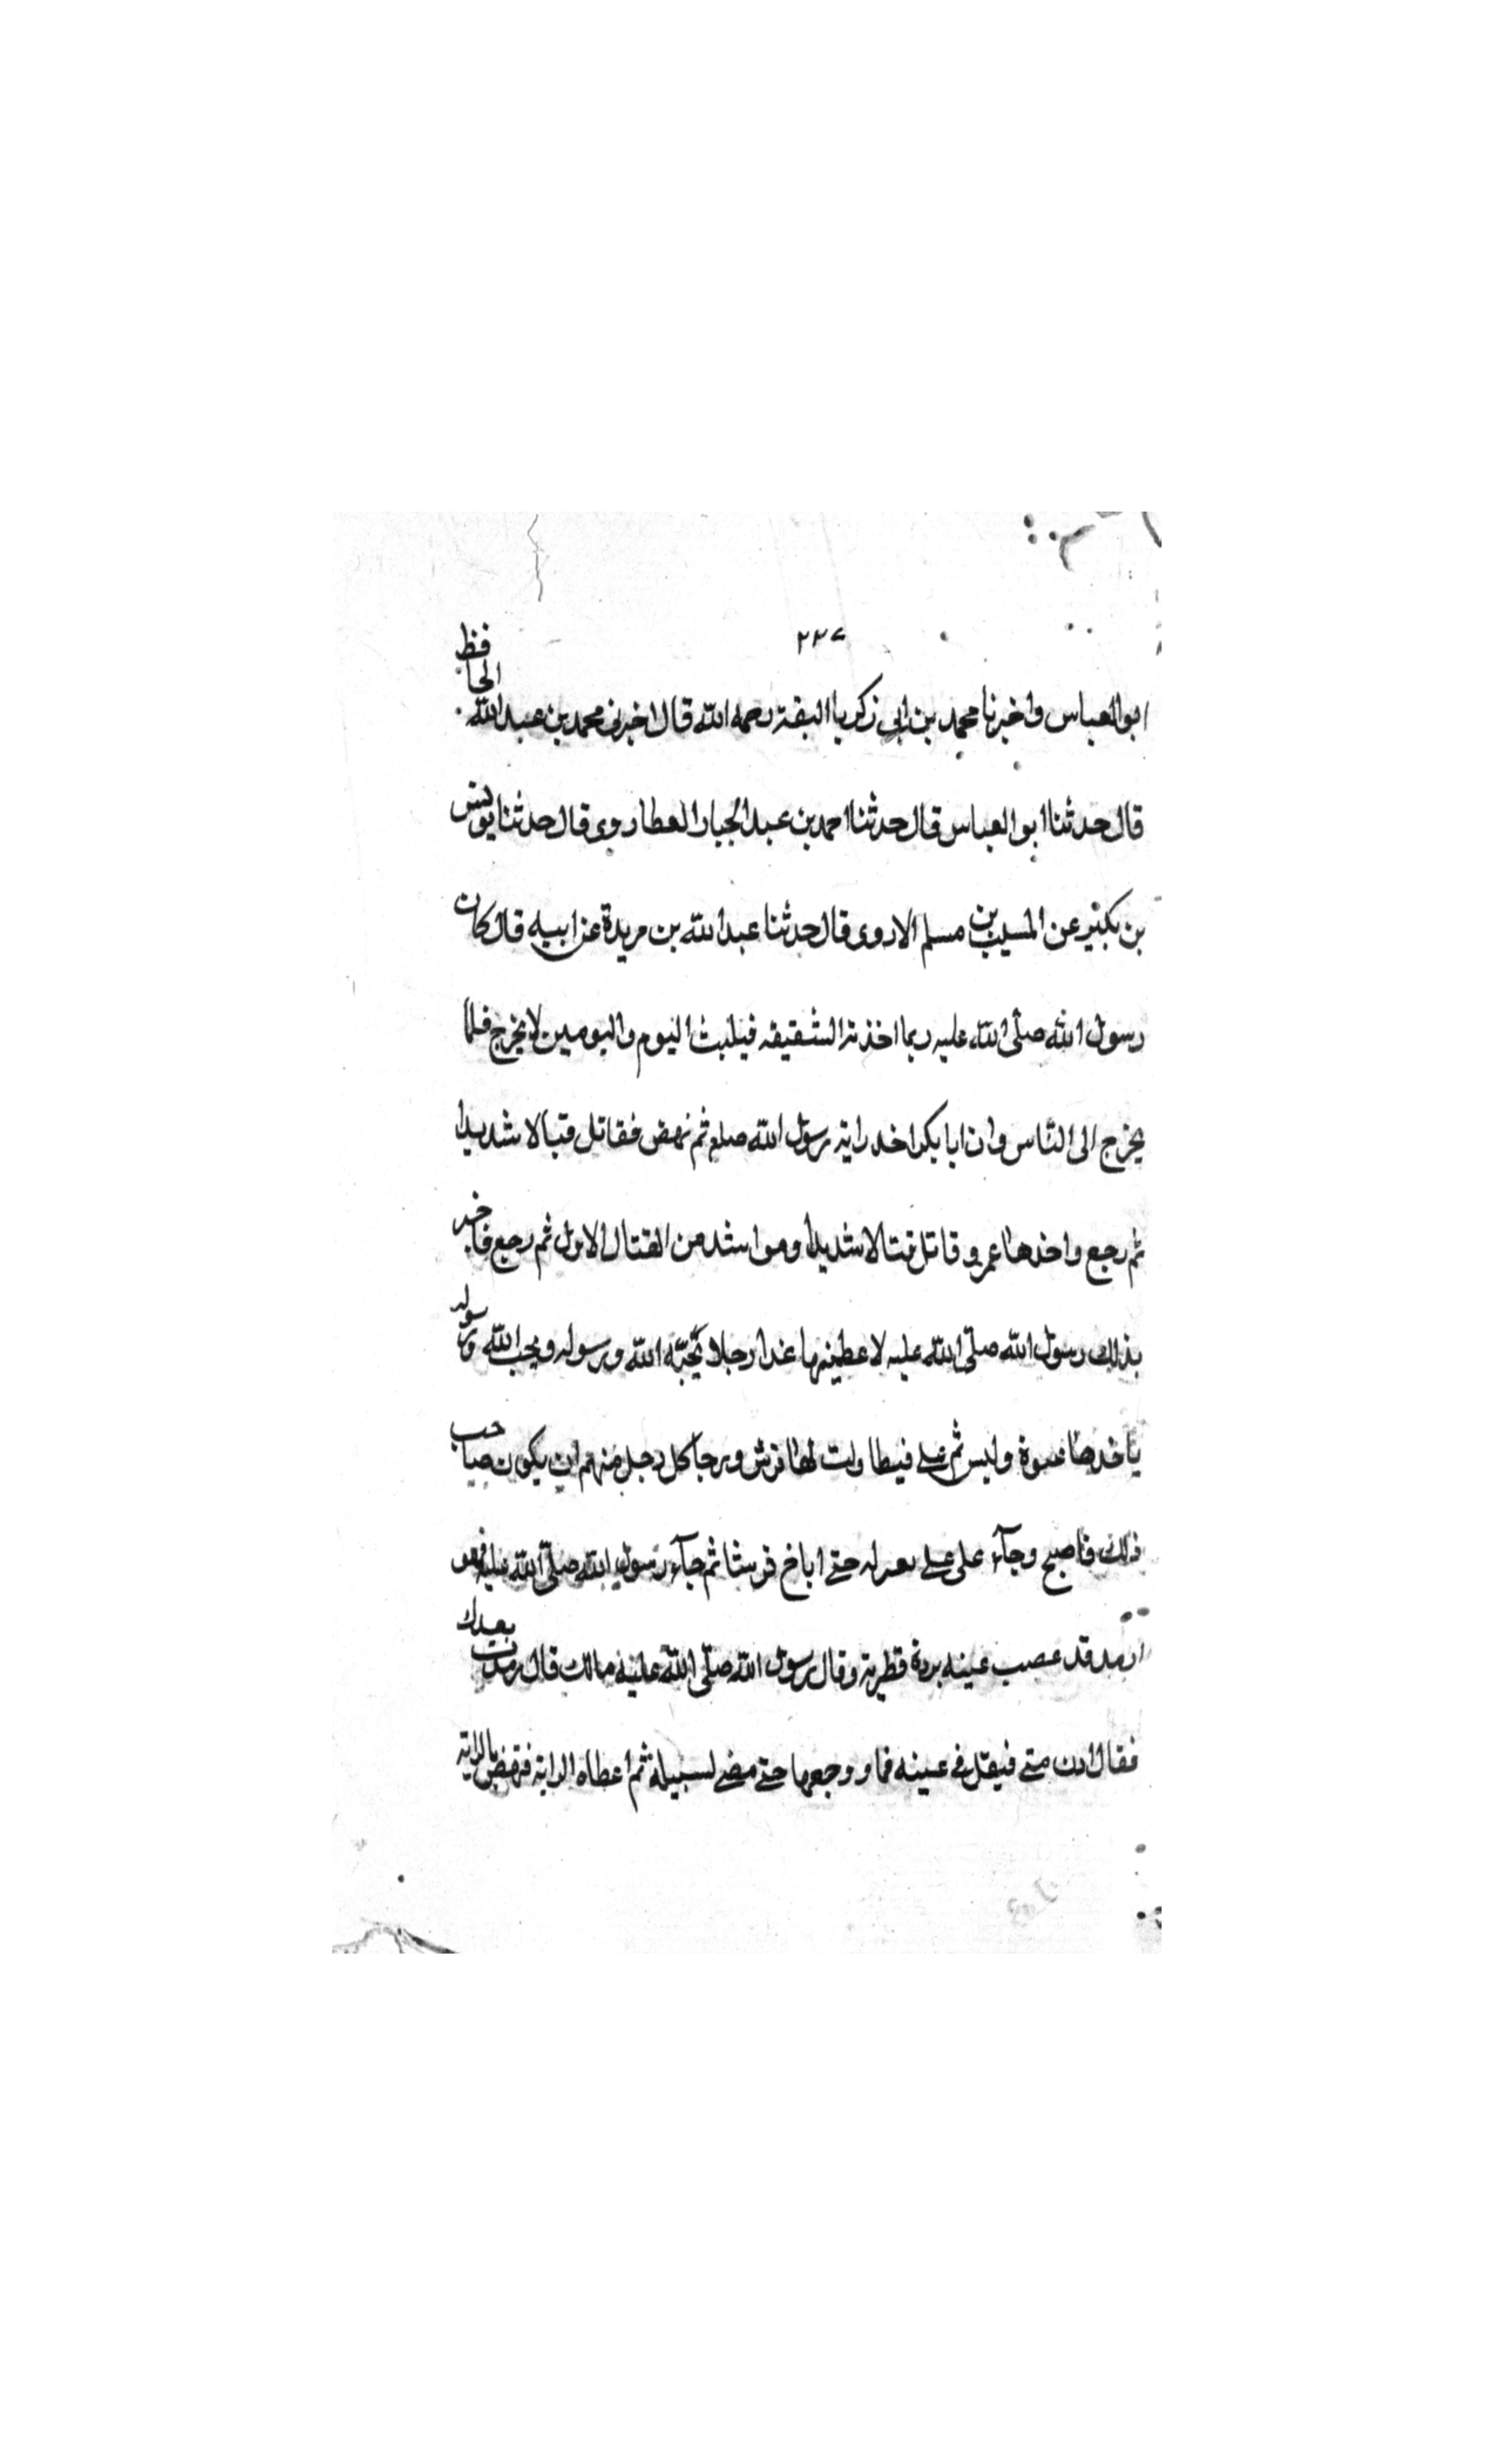 ٢٢٧
ابو العباس واخبرنا محمد بن ابي زكريا الثقة رحمه الله قال اخبرني محمد بن عبد الله الحافظ
قال حدثنا ابو العباس قال حدثنا احمد بن عبد الجبار العطاروى قال حدثنا يونس
بن بكير عن المسيب بن مسلم الاروى قال حدثنا عبد الله بن مريدة عن ابيه قال كان
رسول الله صلى الله عليه ربما اخذته الشقيقه فيلبث اليوم واليومين لا يخرج فلما
يخرج الى الناس وان ابا بكر اخد راية رسول الله صلعم ثم نهض فقاتل قتالا شديدا
ثم رجع واخدها عمر و قاتل قتالا شديدا وهو اشد من القتال الاول ثم رجع فاخبر
بذلك رسول الله صلى الله عليه لاعطينها غدا رجلا يحبه الله ورسوله ويحب الله ورسوله
ياخدها عنوة وليس ثم على فيطاولت لها قرش ورجا كل رجل منهم ان يكون صاحب
ذلك فاصبح وجآء على على بعير له حتى اباخ قرسثا ثم جآء رسول الله صلى الله عليه وهو
ارمد قد عصب عينه بردة قطرية وقال رسول الله صلى الله عليه مالك قال رمدت بعدك
فقال ادن متى فيقل في عينه فما و وجعها حتى مضى لسبيله ثم اعطاه الراية فنهض بالراية